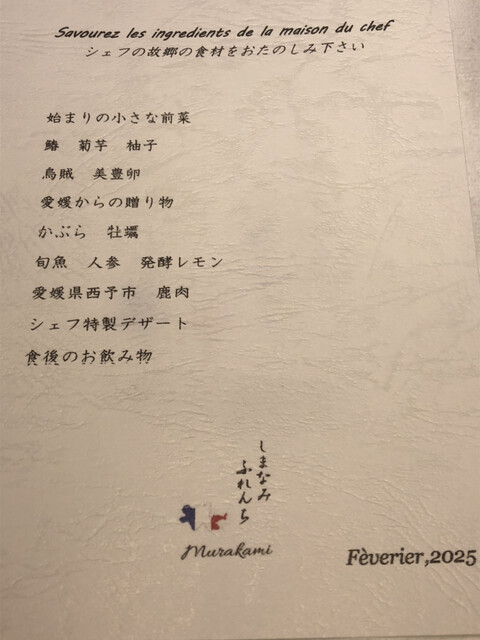 Savourez les ingredients de la maison du chef
シェフの故郷の食材をおたのしみ下さい
始まりの小さな前菜
鰆　菊芋　柚子
烏賊　美豊卵
愛媛からの贈り物
かぶら　牡蠣
旬魚　人参　発酵レモン
愛媛県西予市　鹿肉
シェフ特製デザート
食後のお飲み物
しまなみ
ふれんち
Murakami
Fèverier,2025